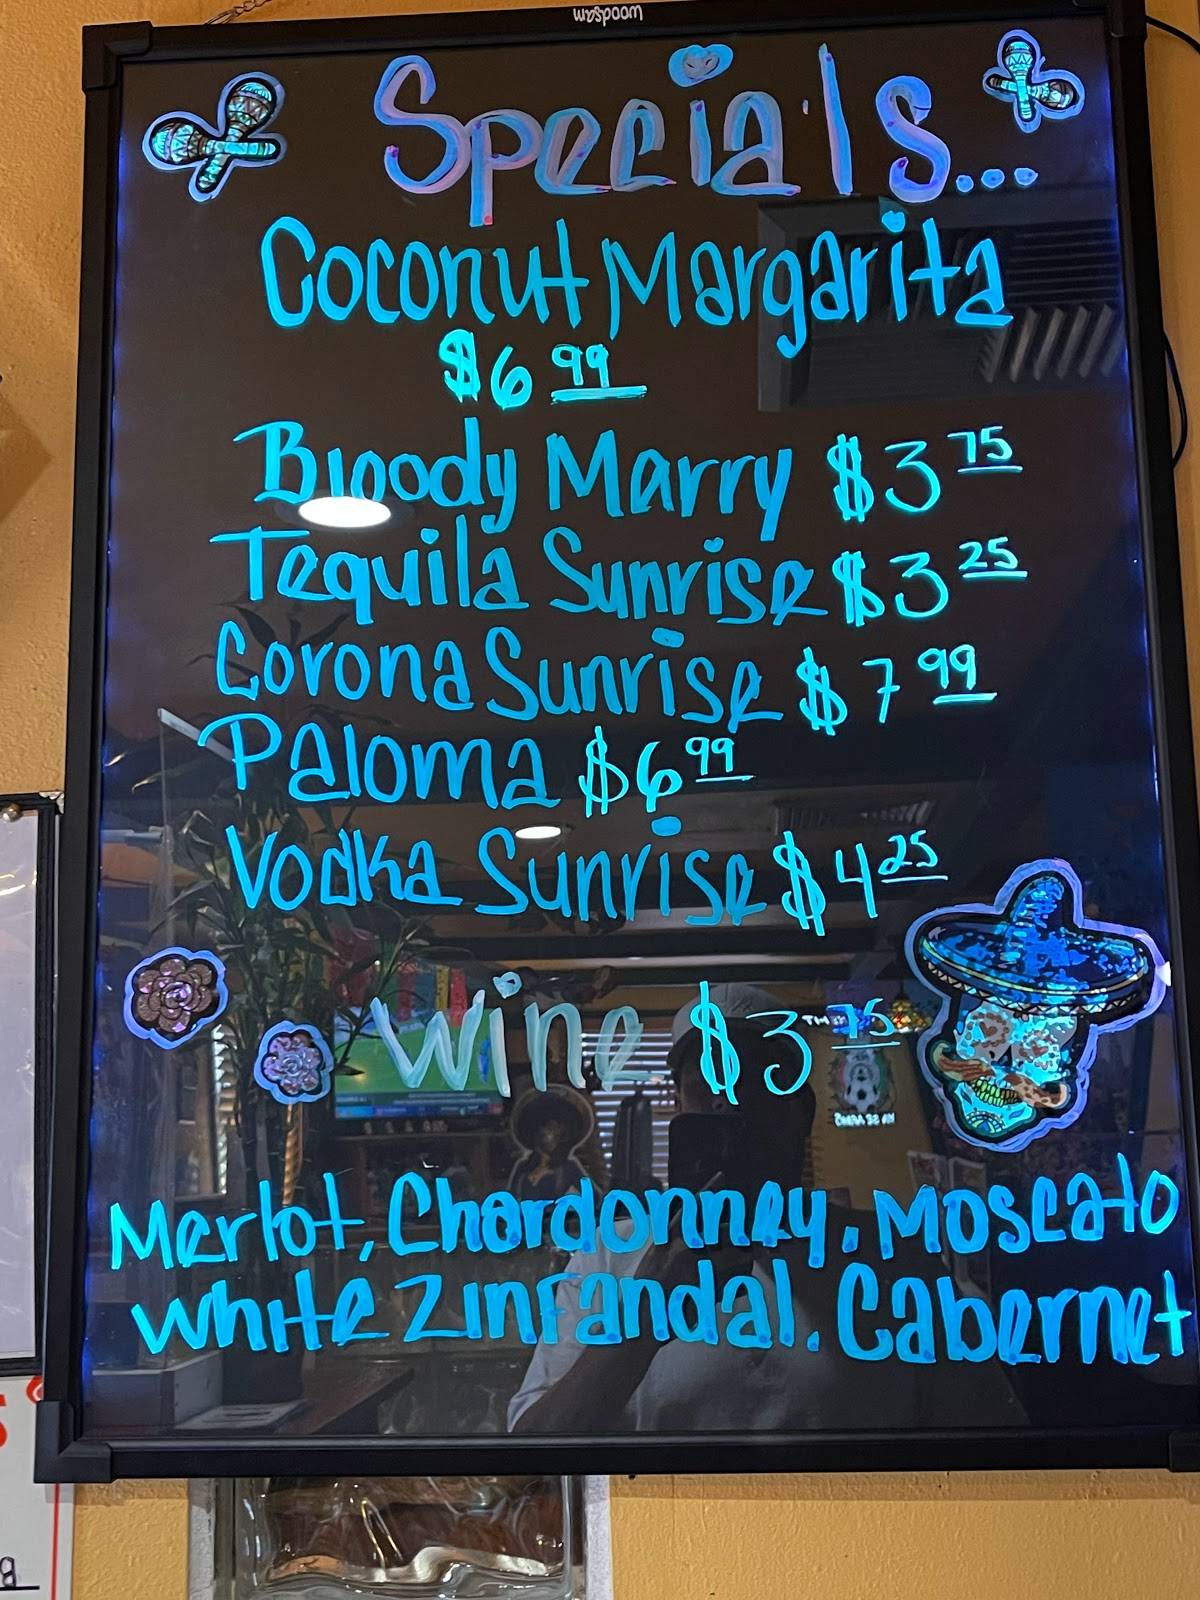 woodsam
Specials...
Coconut Margarita
$6 99
Bloody Marry $3 75
Tequila Sunrise $3 25
Corona Sunrise $7 99
Paloma $6 99
Vodka Sunrise $4 25
Wine $3 75
Merlot, Chardonney, Moscato
White Zinfandal. Cabernet